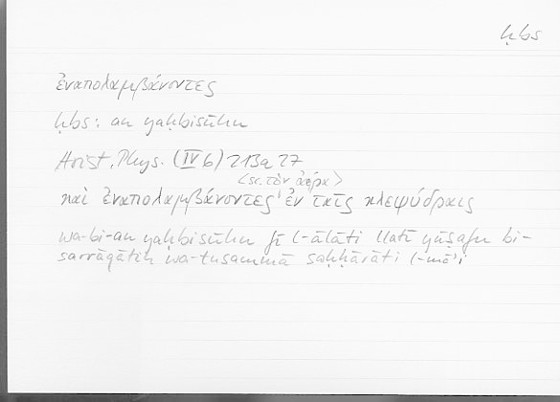 ḥbs
ἐναπολαμβάνοντες
ḥbs: an yaḥbisūhu
Arist., Phys. (IV 6) 213a 27
<sc. τὸν ἀέρα>
καὶ ἐναπολαμβάνοντες ἐν ταῖς κλεψύδραις
wa-bi-an yaḥbisūhu fī l-ālāti llatī yūṣafu bi-
sarrāqātin wa-tusammā saḥḥārāti l-māʾi